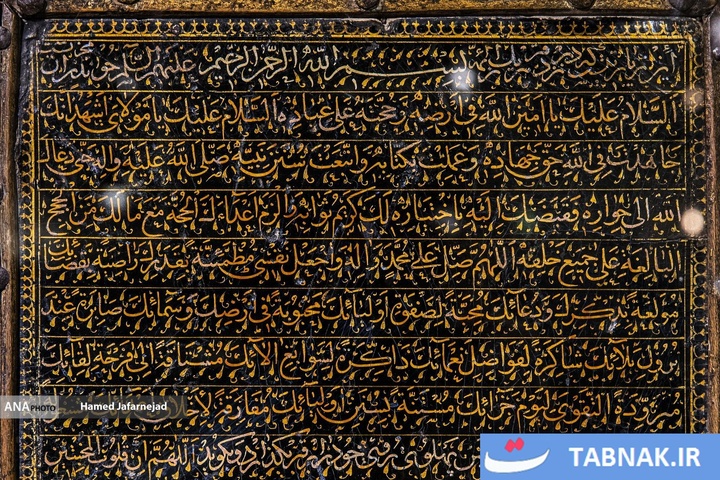 بسم الله الرحمن الرحیم
السلام علیک یا امین الله فی ارضه و حجته علی عباده السلام علیک یا مولای اشهد انک
جاهدت فی الله حق جهاده وعملت بکتابه واتبعت سنن نبیه صلی الله علیه واله حتی دعاک
الله الی جواره فقبضک الیه باختیاره لک کریم ثوابه والزم اعداءک الحجة مع مالک من الحجج
البالغة علی جمیع خلقه اللهم صل علی محمد واله واجعل نفسی مطمئنة بقدرک راضیة بقضائک
مولعة بذکرک ودعائک محبة لصفوة اولیائک محبوبة فی ارضک وسمائک صابرة عند
نزول بلائک شاکرة لفواضل نعمائک ذاکرة لسوابغ الائک مشتاقة الی فرحة لقائک
متزودة التقوی لیوم جزائک مستنة بسنن اولیائک مفارقة
پهلوی روی خود را بر قبر گذارد و گوید اللهم ان قلوب المخبتین
ANA PHOTO Hamed Jafarnejad
TABNAK.IR